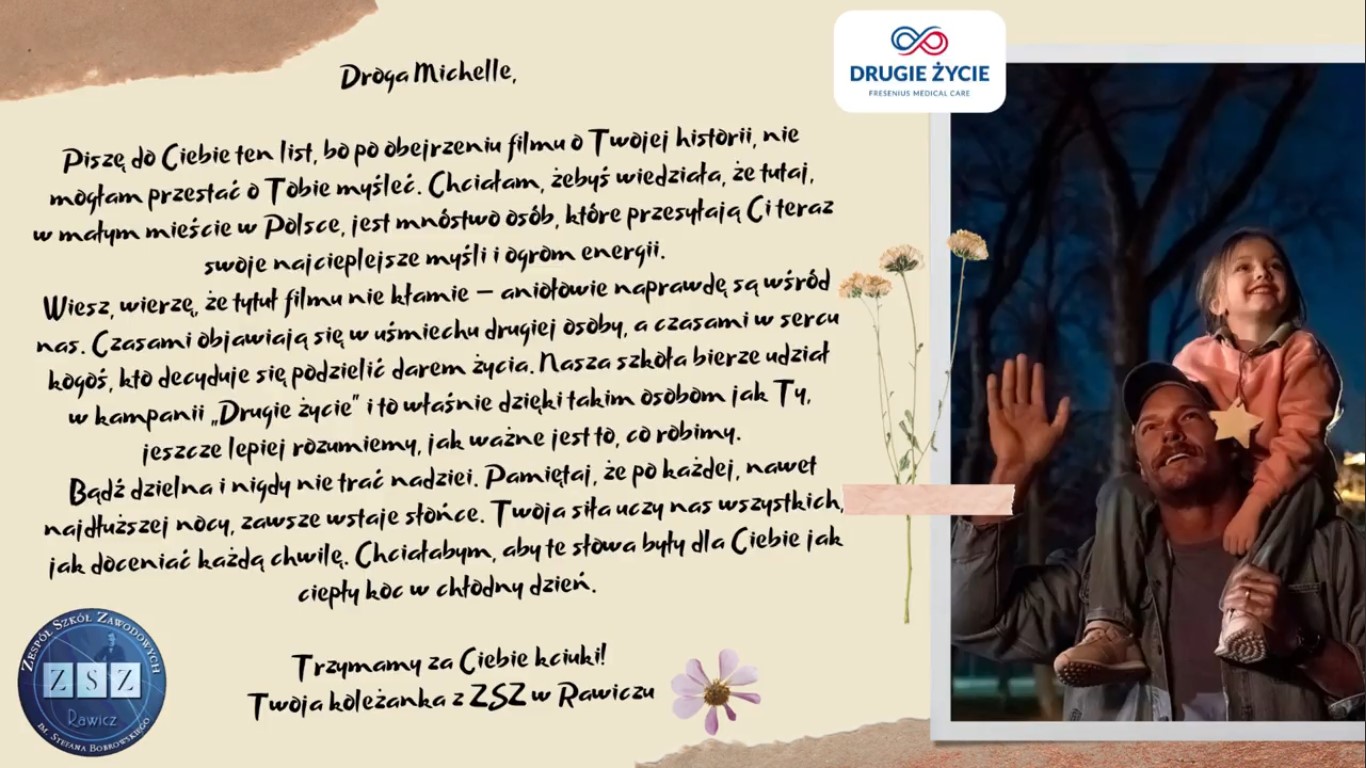 Droga Michelle,
Piszę do Ciebie ten list, bo po obejrzeniu filmu o Twojej historii, nie
mogłam przestać o Tobie myśleć. Chciałam, żebyś wiedziała, że tutaj,
w małym mieście w Polsce, jest mnóstwo osób, które przesyłają Ci teraz
swoje najcieplejsze myśli i ogrom energii.
Wiesz, wierzę, że tytuł filmu nie kłamie – aniołowie naprawdę są wśród
nas. Czasami objawiają się w uśmiechu drugiej osoby, a czasami w sercu
kogoś, kto decyduje się podzielić darem życia. Nasza szkoła bierze udział
w kampanii „Drugie życie” i to właśnie dzięki takim osobom jak Ty,
jeszcze lepiej rozumiemy, jak ważne jest to, co robimy.
Bądź dzielna i nigdy nie trać nadziei. Pamiętaj, że po każdej, nawet
najdłuższej nocy, zawsze wstaje słońce. Twoja siła uczy nas wszystkich,
jak doceniać każdą chwilę. Chciałabym, aby te słowa były dla Ciebie jak
ciepły koc w chłodny dzień.
Trzymamy za Ciebie kciuki!
Twoja koleżanka z ZSZ w Rawiczu
DRUGIE ŻYCIE
FRESENIUS MEDICAL CARE
ZESPÓŁ SZKÓŁ ZAWODOWYCH
ZSZ
Rawicz
IM. STEFANA BOBROWSKIEGO